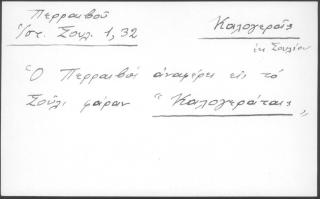 Περραιβοῦ
Ἱστ. Σουλ. 1,32
Καλογεράτες
ἐκ Σουλίου
Ὁ Περραιβὸς ἀναφέρει εἰς τὸ
Σοῦλι φάραν "Καλογεράταις"